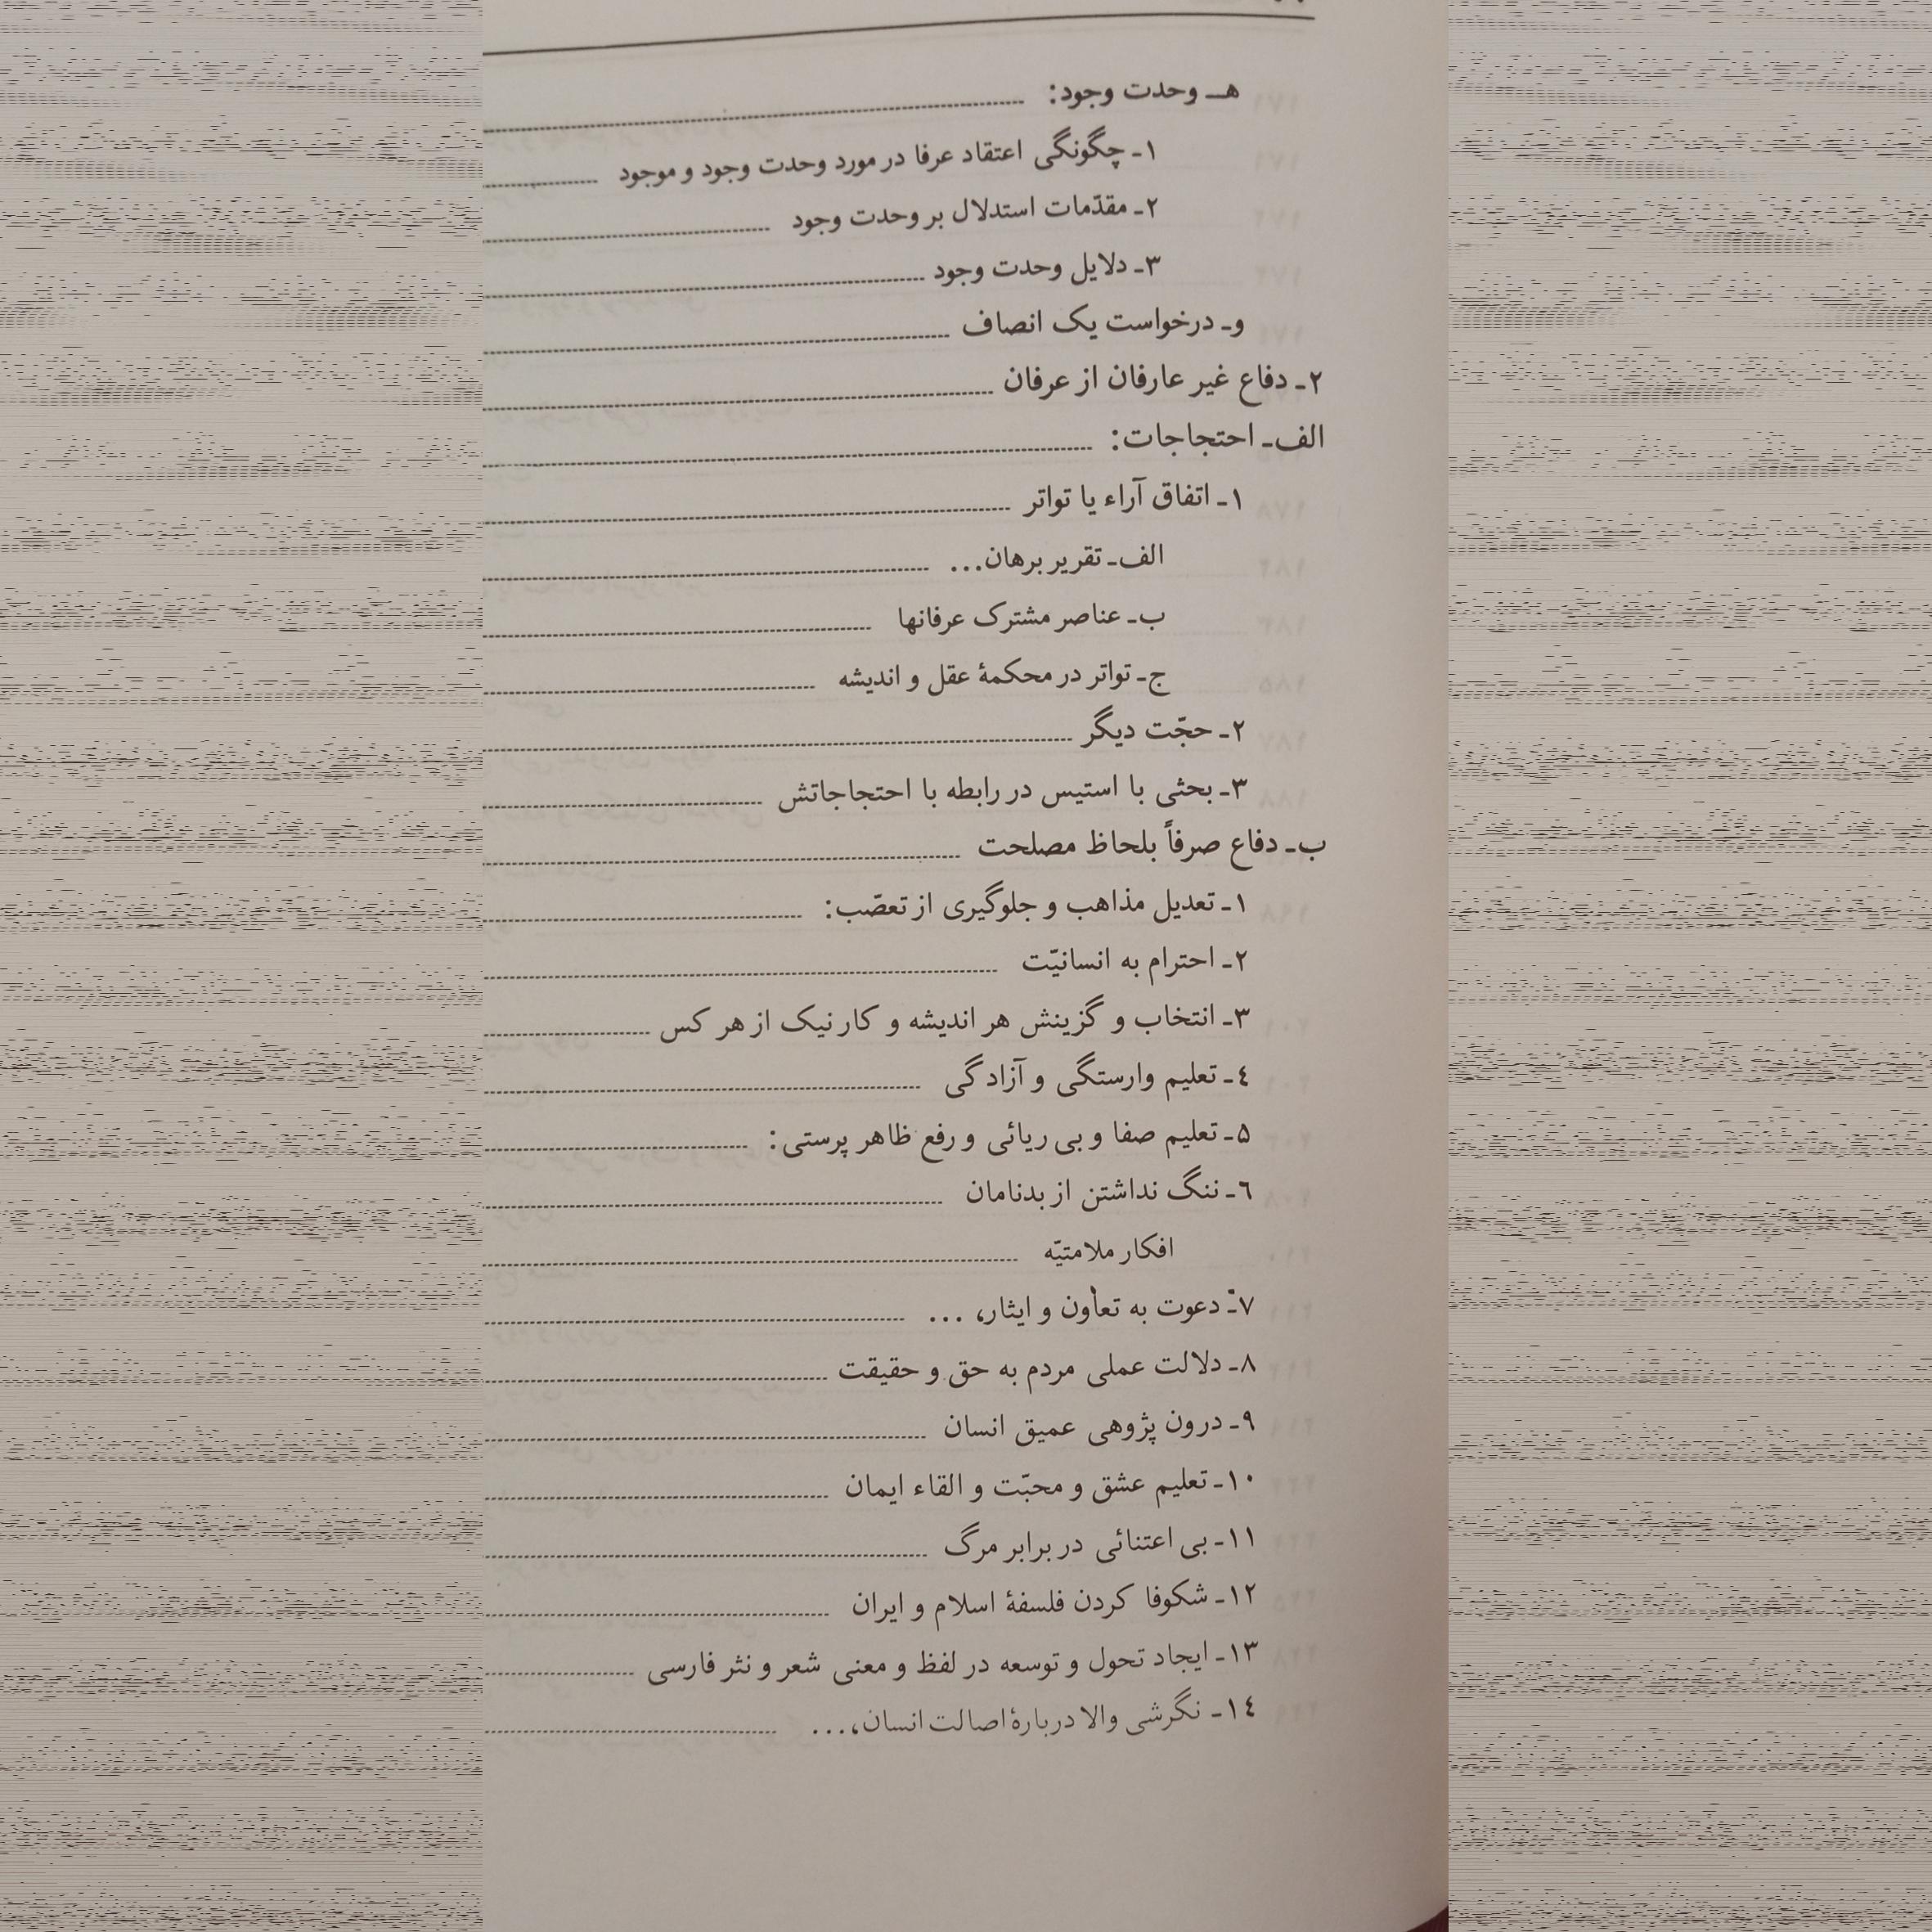 هـ ـ وحدت وجود:
۱ـ چگونگی اعتقاد عرفا در مورد وحدت وجود و موجود
۲ـ مقدّمات استدلال بر وحدت وجود
۳ـ دلایل وحدت وجود
و ـ درخواست یک انصاف
۲ـ دفاع غیر عارفان از عرفان
الف ـ احتجاجات:
۱ـ اتفاق آراء یا تواتر
الف ـ تقریر برهان...
ب ـ عناصر مشترک عرفانها
ج ـ تواتر در محکمهٔ عقل و اندیشه
۲ـ حجّت دیگر
۳ـ بحثی با استیس در رابطه با احتجاجاتش
ب ـ دفاع صرفاً بلحاظ مصلحت
۱ـ تعدیل مذاهب و جلوگیری از تعصّب:
۲ـ احترام به انسانیّت
۳ـ انتخاب و گزینش هر اندیشه و کار نیک از هر کس
٤ـ تعلیم وارستگی و آزادگی
۵ـ تعلیم صفا و بی ریائی و رفع ظاهر پرستی:
٦ـ ننگ نداشتن از بدنامان
افکار ملامتیّه
۷ـ دعوت به تعاون و ایثار، ...
۸ـ دلالت عملی مردم به حق و حقیقت
۹ـ درون پژوهی عمیق انسان
۱۰ـ تعلیم عشق و محبّت و القاء ایمان
۱۱ـ بی اعتنائی در برابر مرگ
۱۲ـ شکوفا کردن فلسفهٔ اسلام و ایران
۱۳ـ ایجاد تحول و توسعه در لفظ و معنی شعر و نثر فارسی
۱٤ـ نگرشی والا دربارهٔ اصالت انسان،...